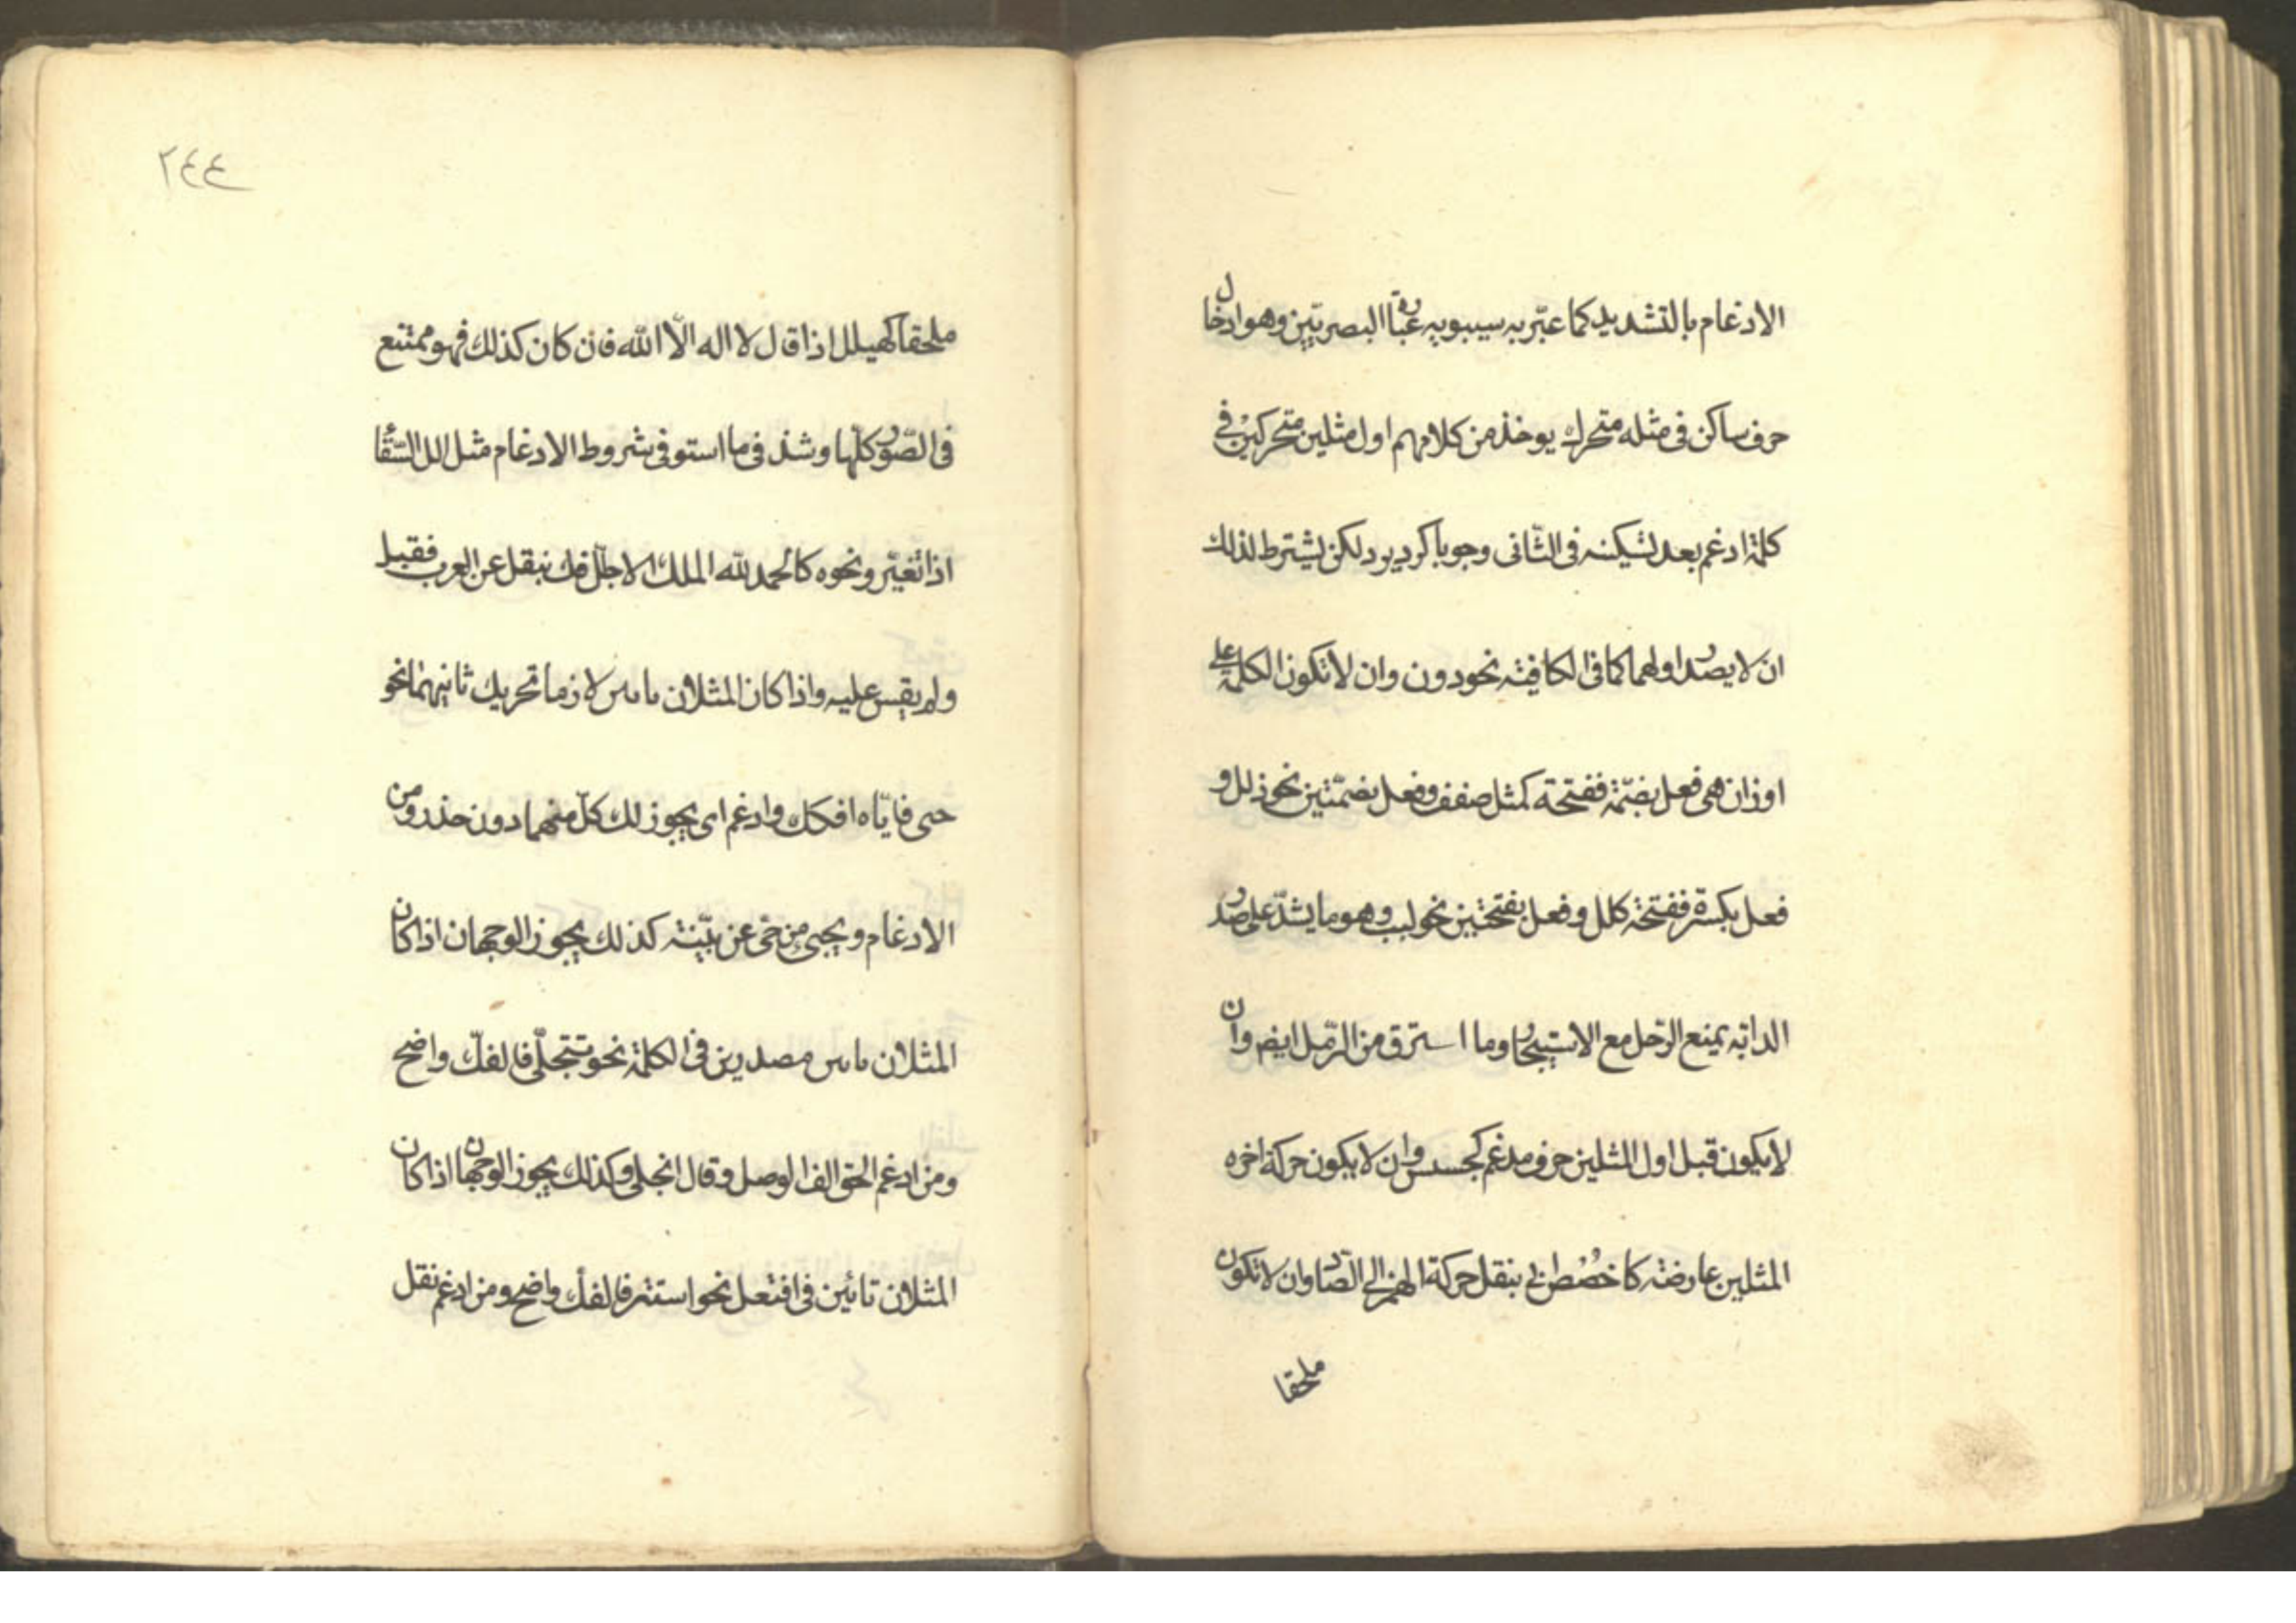 الادغام بالتشديد كما عبّر به سيبويه عبارة البصريّين وهو ادخال
حرف ساكن فى مثله متحرك يوخذ من كلامهم اول مثلين متحركين فى
كلمة ادغم بعد تسكينه فى الثّانى وجوبا كرد يرد لكن يشترط لذلك
ان لا يصدر اولهما كما فى الكافية نحو ددن وان لا تكون الكلمة على
اوزان هى فعل بضمّة ففتحة كمثل صفف وفعل بضمّتين نحو ذلل و
فعل بكسرة ففتحة كلل وفعل بفتحتين نحو لبب وهو ما يشدّ على صدر
الدابّة يمنع الرّحل مع الاستيخار وما استرق من الرّمل ايضا وان
لا يكون قبل اول المثلين حرف مدغم كجسس وان لا يكون حركة اخره
المثلين عارضة كاخصُص ابى بنقل حركة الهمزة الى الصّاد وان لا تكون
ملحقا
٢٤٤
ملحقا كهيلل اذا قال لا اله الّا الله فان كان كذلك فهو ممتنع
فى الصّور كلّها وشذ فى ما استوفى شروط الادغام مثل الل السّقاء
اذا تغيّر ونحوه كالحمد لله الملك الاجلل فك بنقل عن العرب فقبل
ولم يقس عليه واذا كان المثلان يايين لازما تحريك ثانيهما نحو
حيى فايّاه افكك وادغم اى يجوز لك كلّ منهما دون حذر ومن
الادغام ويحيى من حىّ عن بيّنة كذلك يجوز الوجهان اذا كان
المثلان تايين مصدرين فى الكلمة نحو تتجلّى فالفكّ واضح
ومن ادغم الحق الف الوصل وقال اتجلى وكذلك يجوز الوجهان اذا كان
المثلان تائين فى افتعل نحو استتر فالفك واضح ومن ادغم نقل